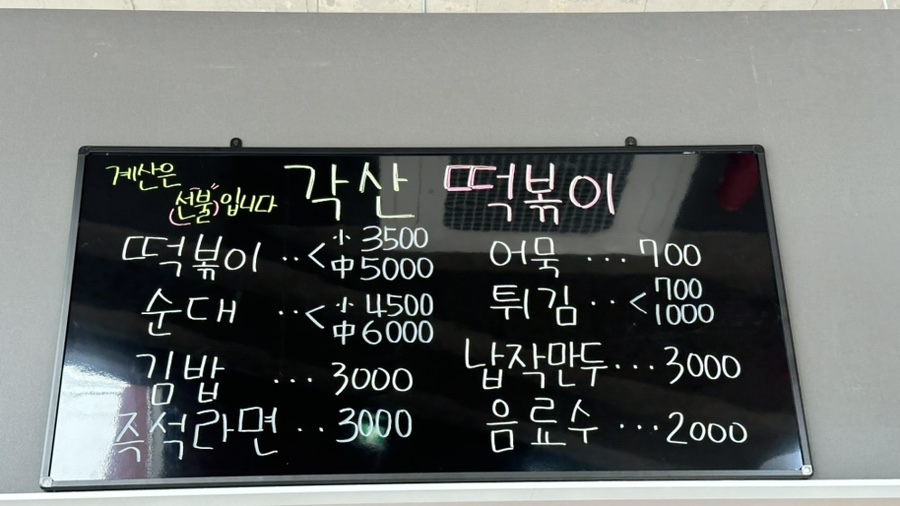 계산은
선불입니다
각산 떡볶이
떡볶이 ‥< 小 3500
中 5000
순대 ‥< 小 4500
中 6000
김밥 … 3000
즉석라면 ‥ 3000
어묵 … 700
튀김 ‥< 700
1000
납작만두 … 3000
음료수 … 2000